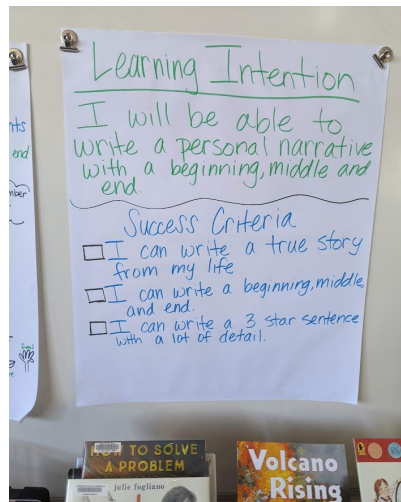 Learning Intention
I will be able to
write a personal narrative
with a beginning, middle and
end.
Success Criteria
I can write a true story
from my life
I can write a beginning, middle,
and end.
I can write a 3 star sentence
with a lot of detail.
nts
end
mber
HOW TO SOLVE
A PROBLEM
julie fogliano
Volcano
Rising